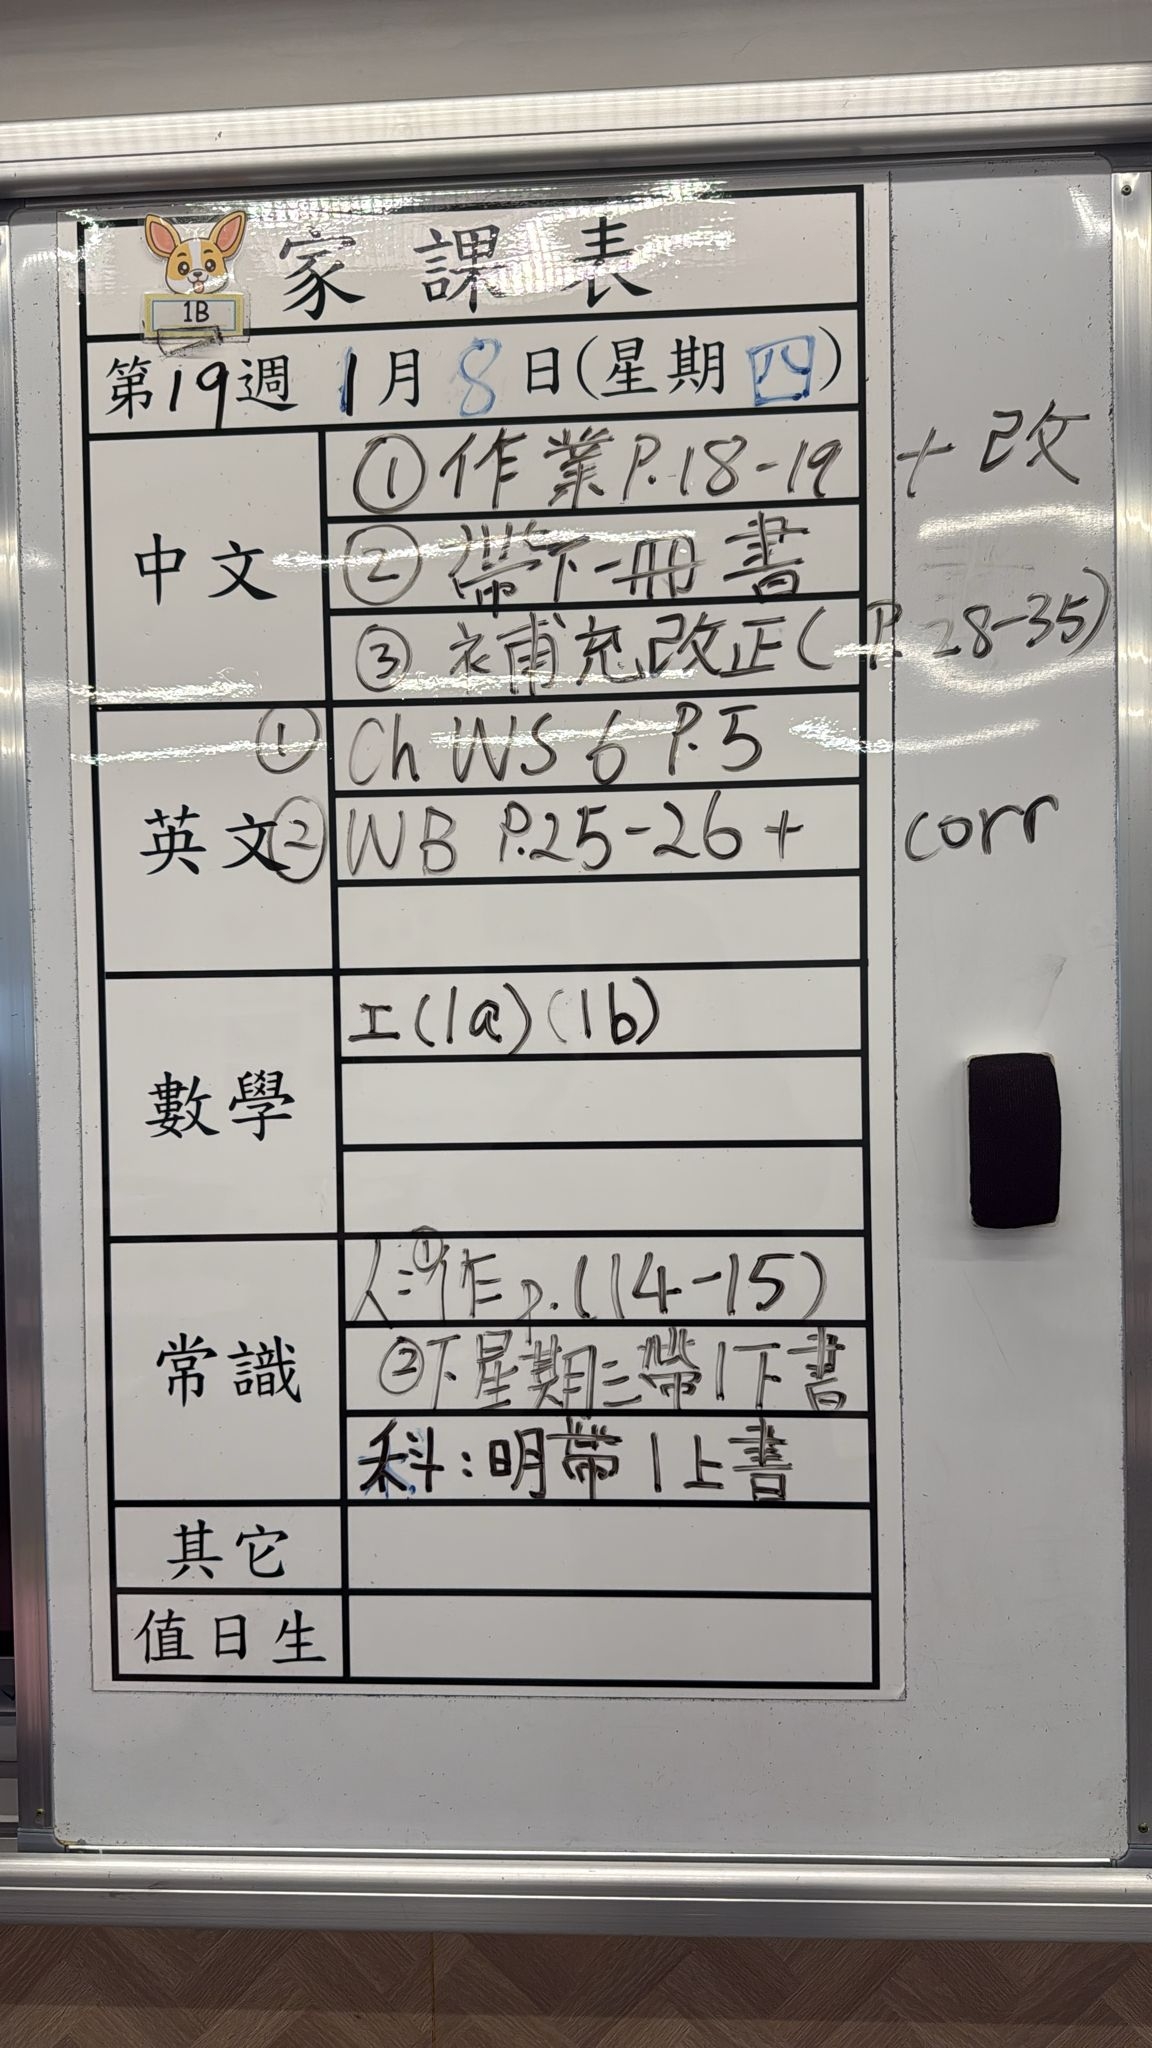 家課表
1B
第19週 1月8日(星期四)
中文
①作業P.18-19 + 改
②帶下一冊書
③補充改正(P.28-35)
英文
① Ch WS 6 P.5
② WB P.25-26 + corr
數學
工(1a)(1b)
常識
人:①作P.(14-15)
②下星期三帶1下書
科:明帶1上書
其它
值日生